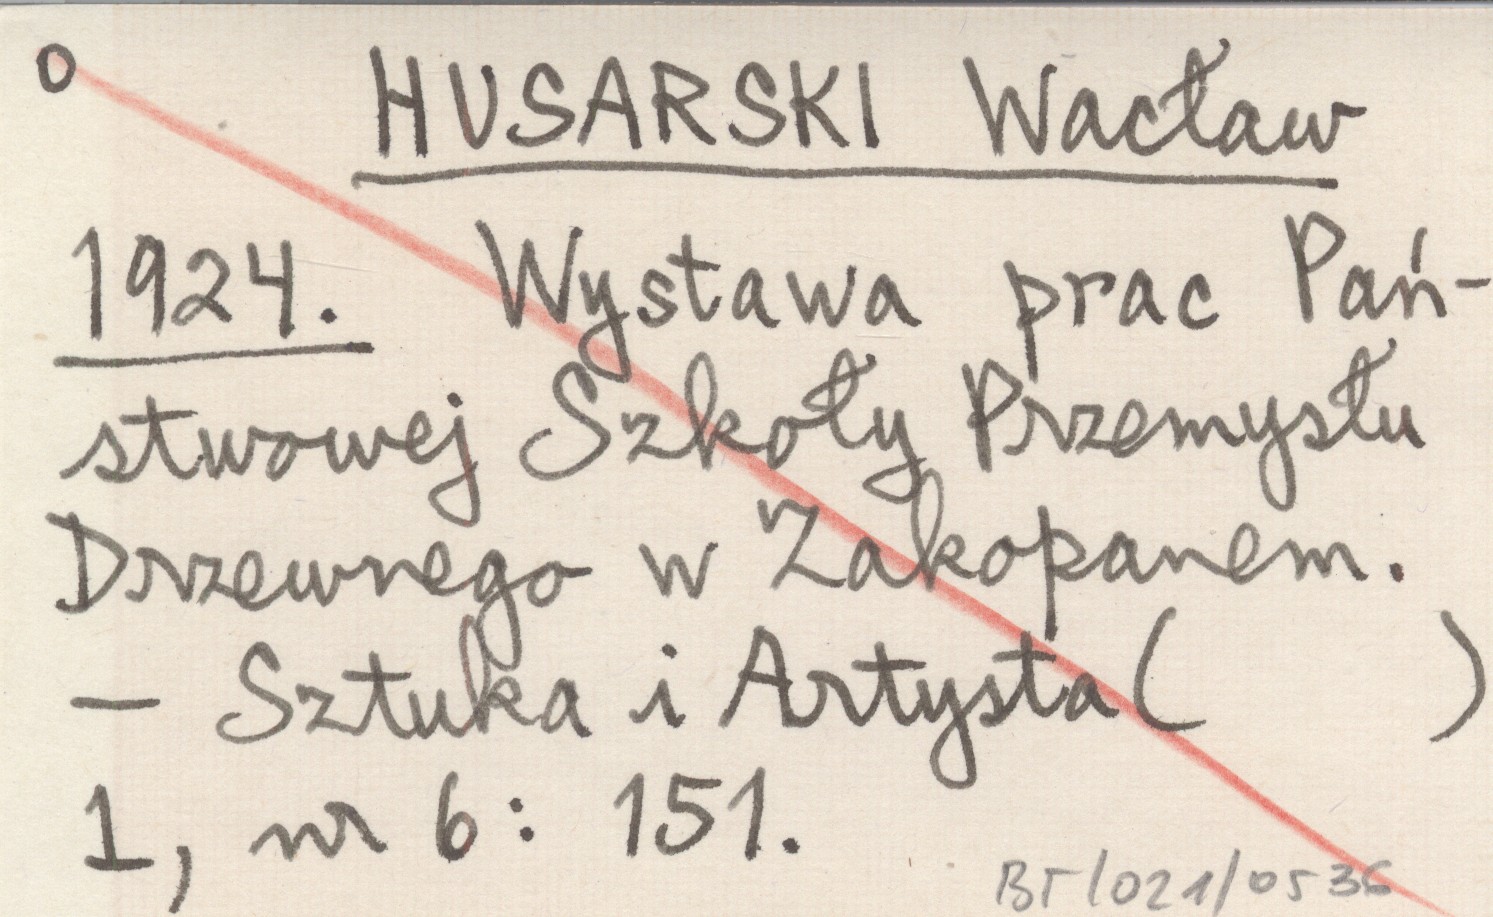 o HUSARSKI Wacław
1924. Wystawa prac Pań-
stwowej Szkoły Przemysłu
Drzewnego w Zakopanem.
— Sztuka i Artysta ( )
1, nr 6: 151.
BT/021/0536